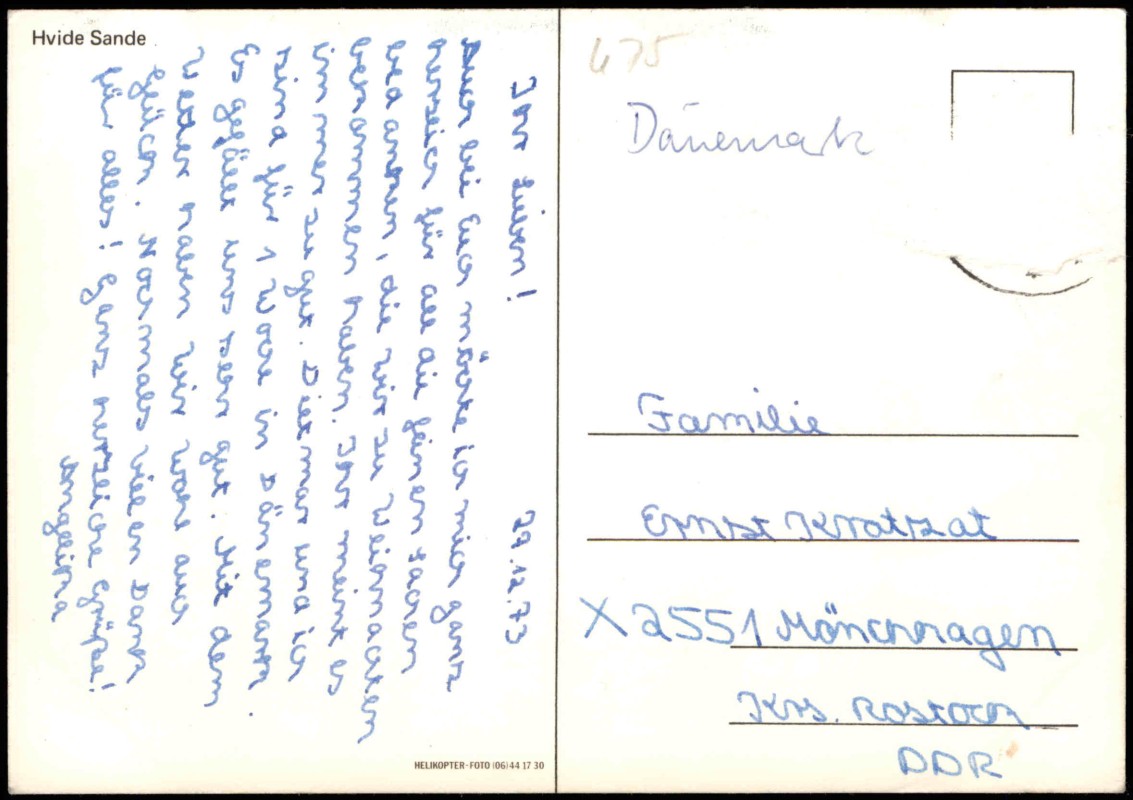 Hvide Sande
Ihr Lieben! 29.12.73
Auch bei Euch möchte ich mich ganz
herzlich für all die feinen Sachen
bedanken, die wir zu Weihnachten
bekommen haben. Ihr meint es
immer zu gut. Dietmar und ich
sind für 1 Woche in Dänemark.
Es gefällt uns sehr gut. Mit dem
Wetter haben wir wohl auch
Glück. Nochmals vielen Dank
für alles! Ganz herzliche Grüße!
Angelika
HELIKOPTER-FOTO (06) 44 17 30
475
Dänemark
Familie
Ernst Kratzat
X2551 Mönchhagen
Krs. Rostock
DDR